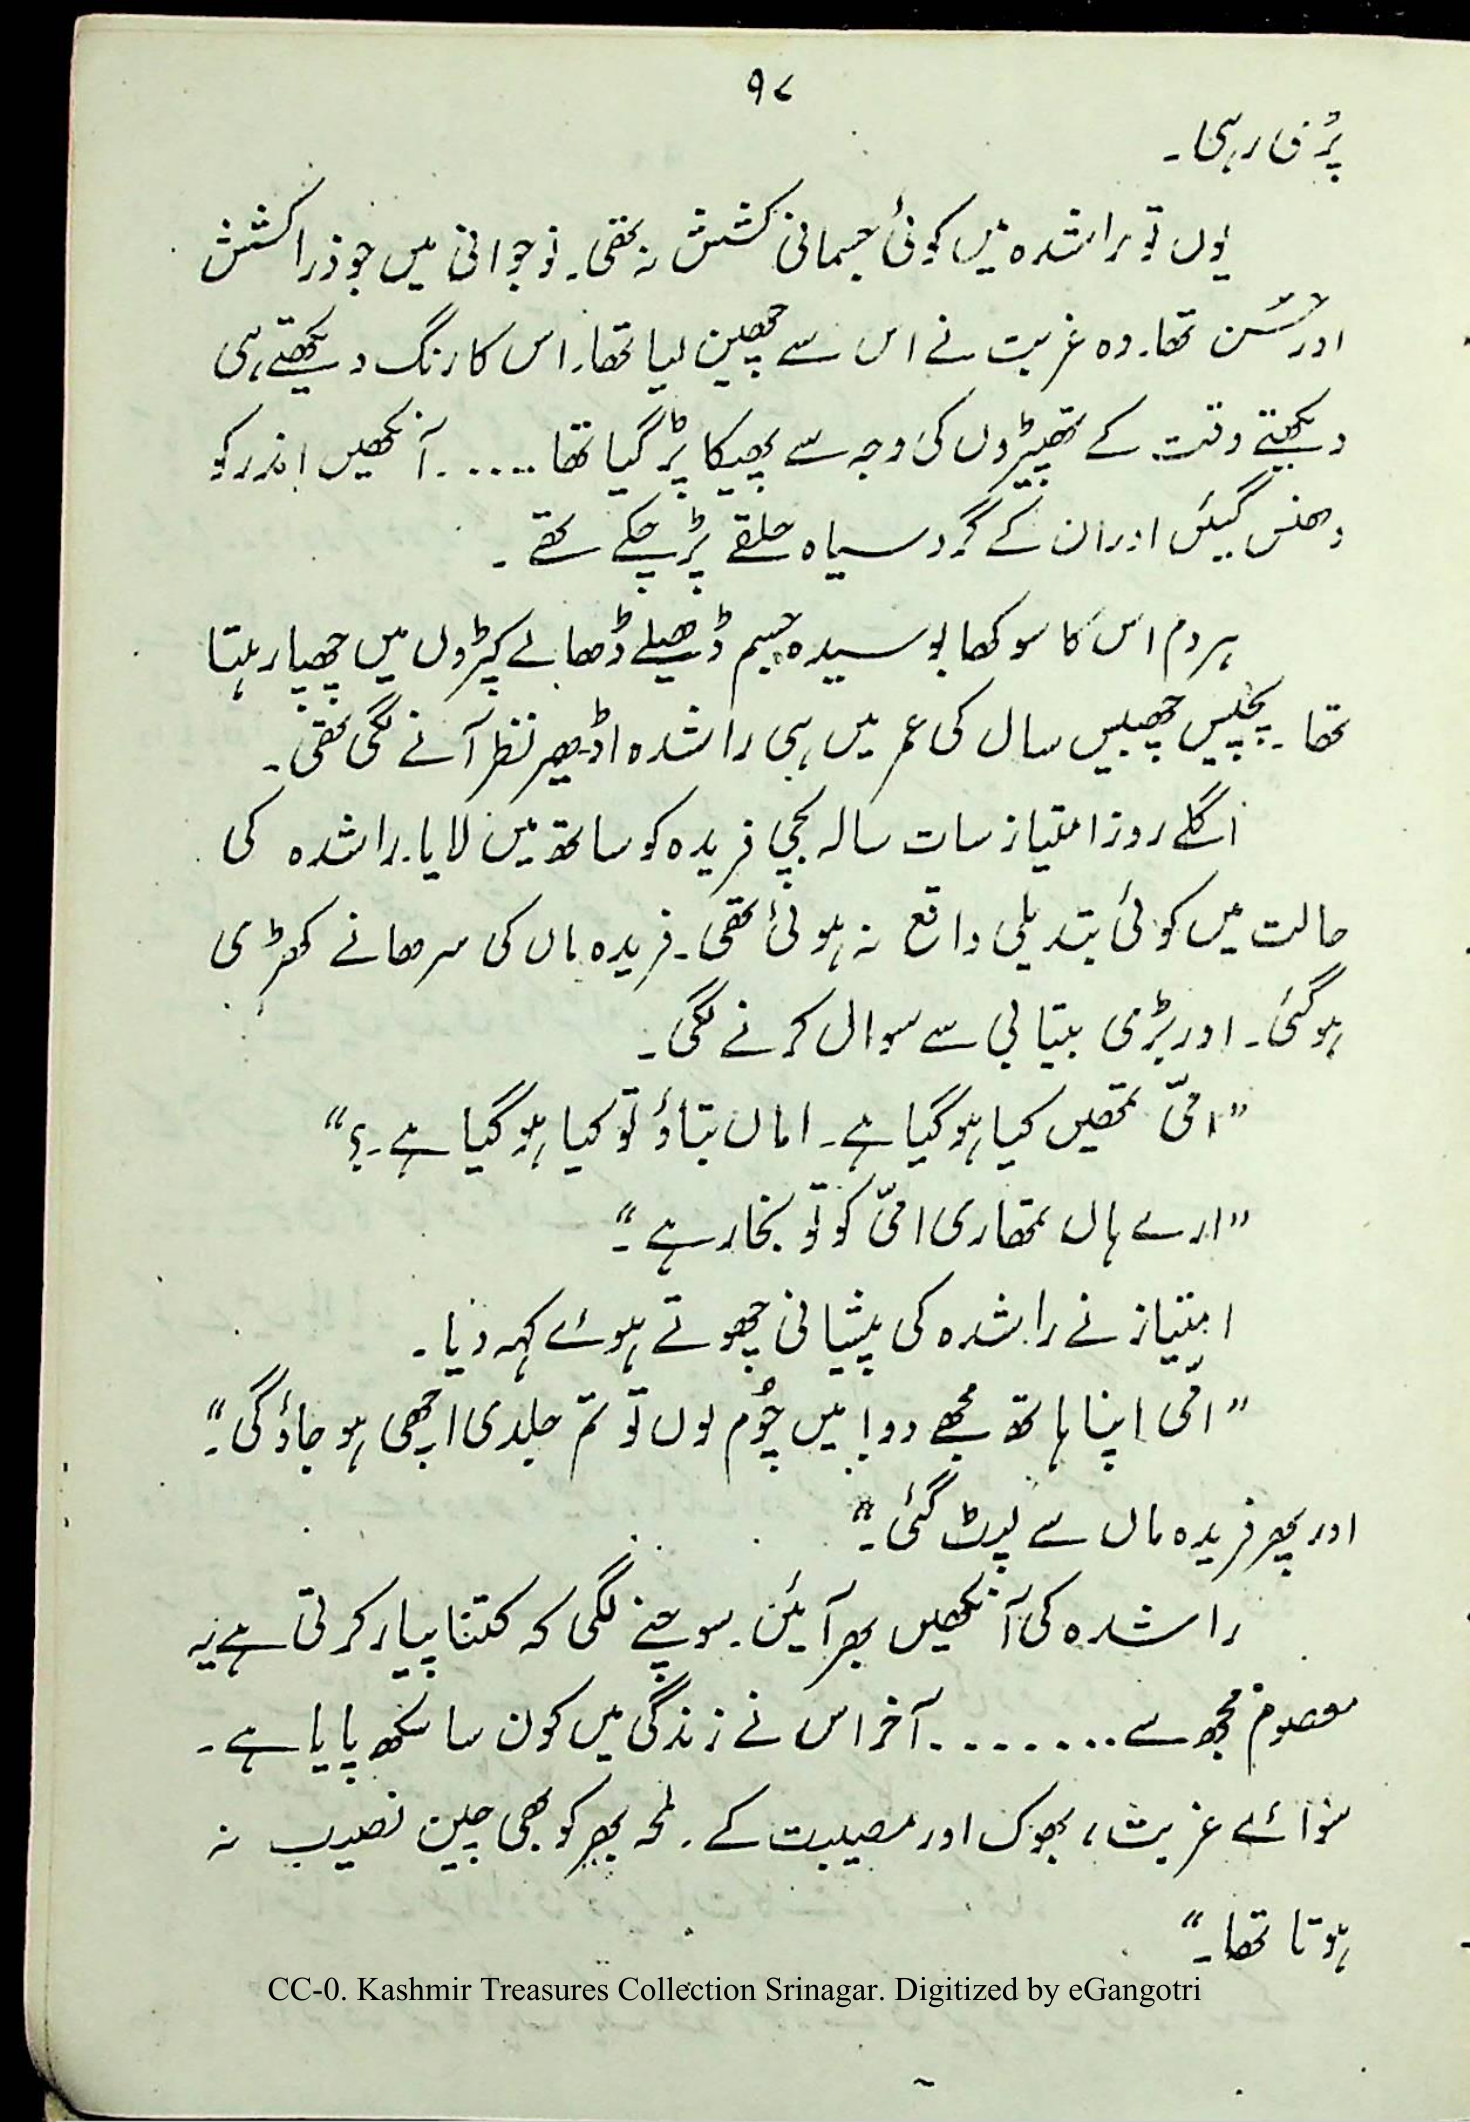 ۹۷
پڑی رہی۔
یوں تو راشدہ میں کوئی جسمانی کشش نہ تھی۔ نوجوانی میں جو ذرا کشش
اور حُسن تھا۔ وہ غربت نے اس سے چھین لیا تھا۔ اس کا رنگ دیکھتے ہی
دیکھتے وقت کے تھپیڑوں کی وجہ سے پھیکا پڑ گیا تھا ...... آنکھیں اندر کو
دھنس گیئں اور ان کے گرد سیاہ حلقے پڑ چکے تھے ۔
ہر دم اس کا سوکھا بوسیدہ جسم ڈھیلے ڈھالے کپڑوں میں چھپا رہتا
تھا ۔ پچیس چھبیس سال کی عمر میں ہی راشدہ اڈھیر نظر آنے لگی تھی۔
اگلے روز امتیاز سات سالہ بچی فریدہ کو ساتھ میں لایا۔ راشدہ کی
حالت میں کوئی تبدیلی واقع نہ ہوئی تھی۔ فریدہ ماں کی سرھانے کھڑی
ہو گئی۔ اور بڑی بیتابی سے سوال کرنے لگی۔
”امّی تمھیں کیا ہو گیا ہے۔ اماں بتاؤ تو کیا ہو گیا ہے۔؟“
”ارے ہاں تمھاری امّی کو تو بخار ہے ۔“
امتیاز نے راشدہ کی پیشانی چھوتے ہوئے کہہ دیا ۔
”امّی اپنا ہاتھ مجھے دو! میں چُوم لوں تو تم جلدی اچھی ہو جاؤ گی۔“
اور پھر فریدہ ماں سے لپٹ گئی۔“
راشدہ کی آنکھیں بھر آیئں۔ سوچنے لگی کہ کتنا پیار کرتی ہے یہ
معصوم مجھ سے ........ آخر اس نے زندگی میں کون سا سکھ پایا ہے ۔
سوائے غربت، بھوک اور مصیبت کے ۔ لمحہ بھر کو بھی چین نصیب نہ
ہوتا تھا۔“
CC-0. Kashmir Treasures Collection Srinagar. Digitized by eGangotri